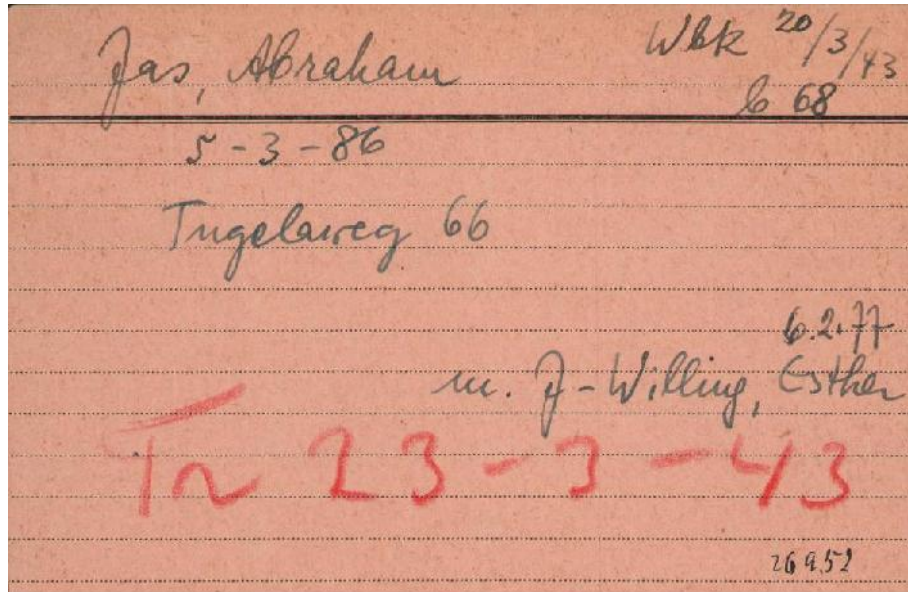 Jas, Abraham Wbk 20/3/43
b 68
5-3-86
Tugelaweg 66
6.2.77
m. J-Willing, Esther
Tr 23-3-43
26952